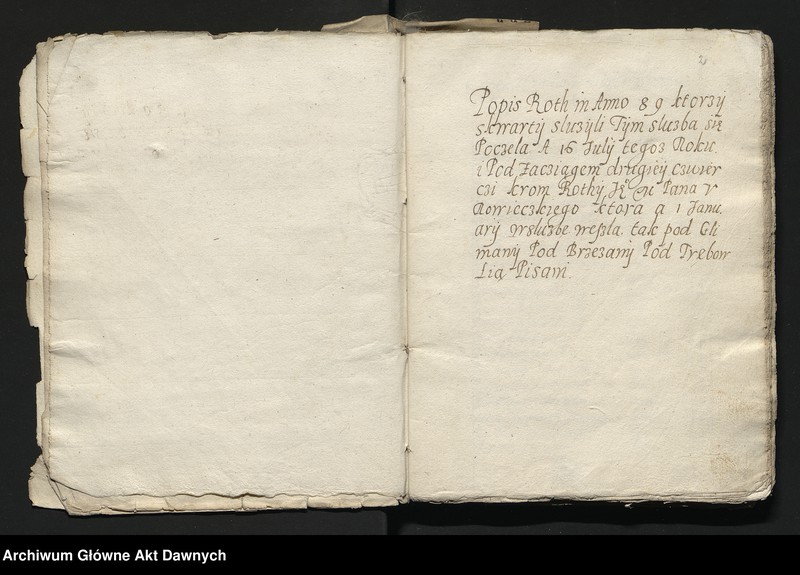 2
Popis Roth in Anno 89 ktorzy
skwarty sluzyli Tym sluzba się
Poczela A 16 July tegoz Roku
i Pod Zacziągem drugiey czwier
czi krom Rothy Pana
ktora a 1 Janu
ary wsluzbe weszla. tak pod Gli
many Pod Brzezany Pod Trebow
lią Pisani.
Archiwum Główne Akt Dawnych